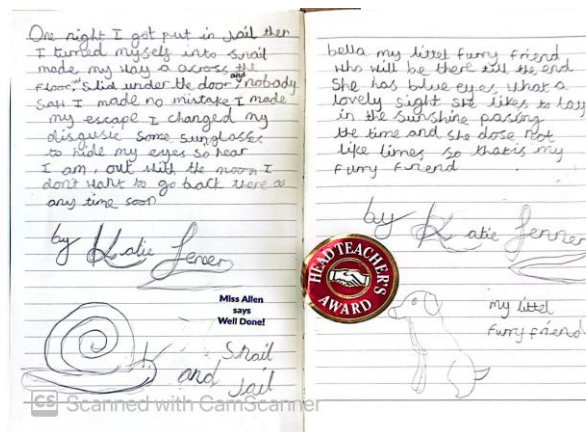 One night I got put in Jail then
I turned myself into snail
made my way a across the
Floor, and Slid under the door and nobody
Saw I made no mistake I made
my escape I changed my
disgusie some sunglasses
to hide my eyes so hear
I am, out with the moon I
don't want to go back there
any time soon
by Katie
Miss Allen
says
Well Done!
Snail
and Jail
bella my littel furry friend
who will be there till the end
She has blue eyes what a
lovely sight she likes to lay
in the sunshine passing
the time and she dose not
like limes so that is my
furry friend
by Katie Fenner
HEADTEACHER'S
AWARD
my littel
furry friend
CS Scanned with CamScanner